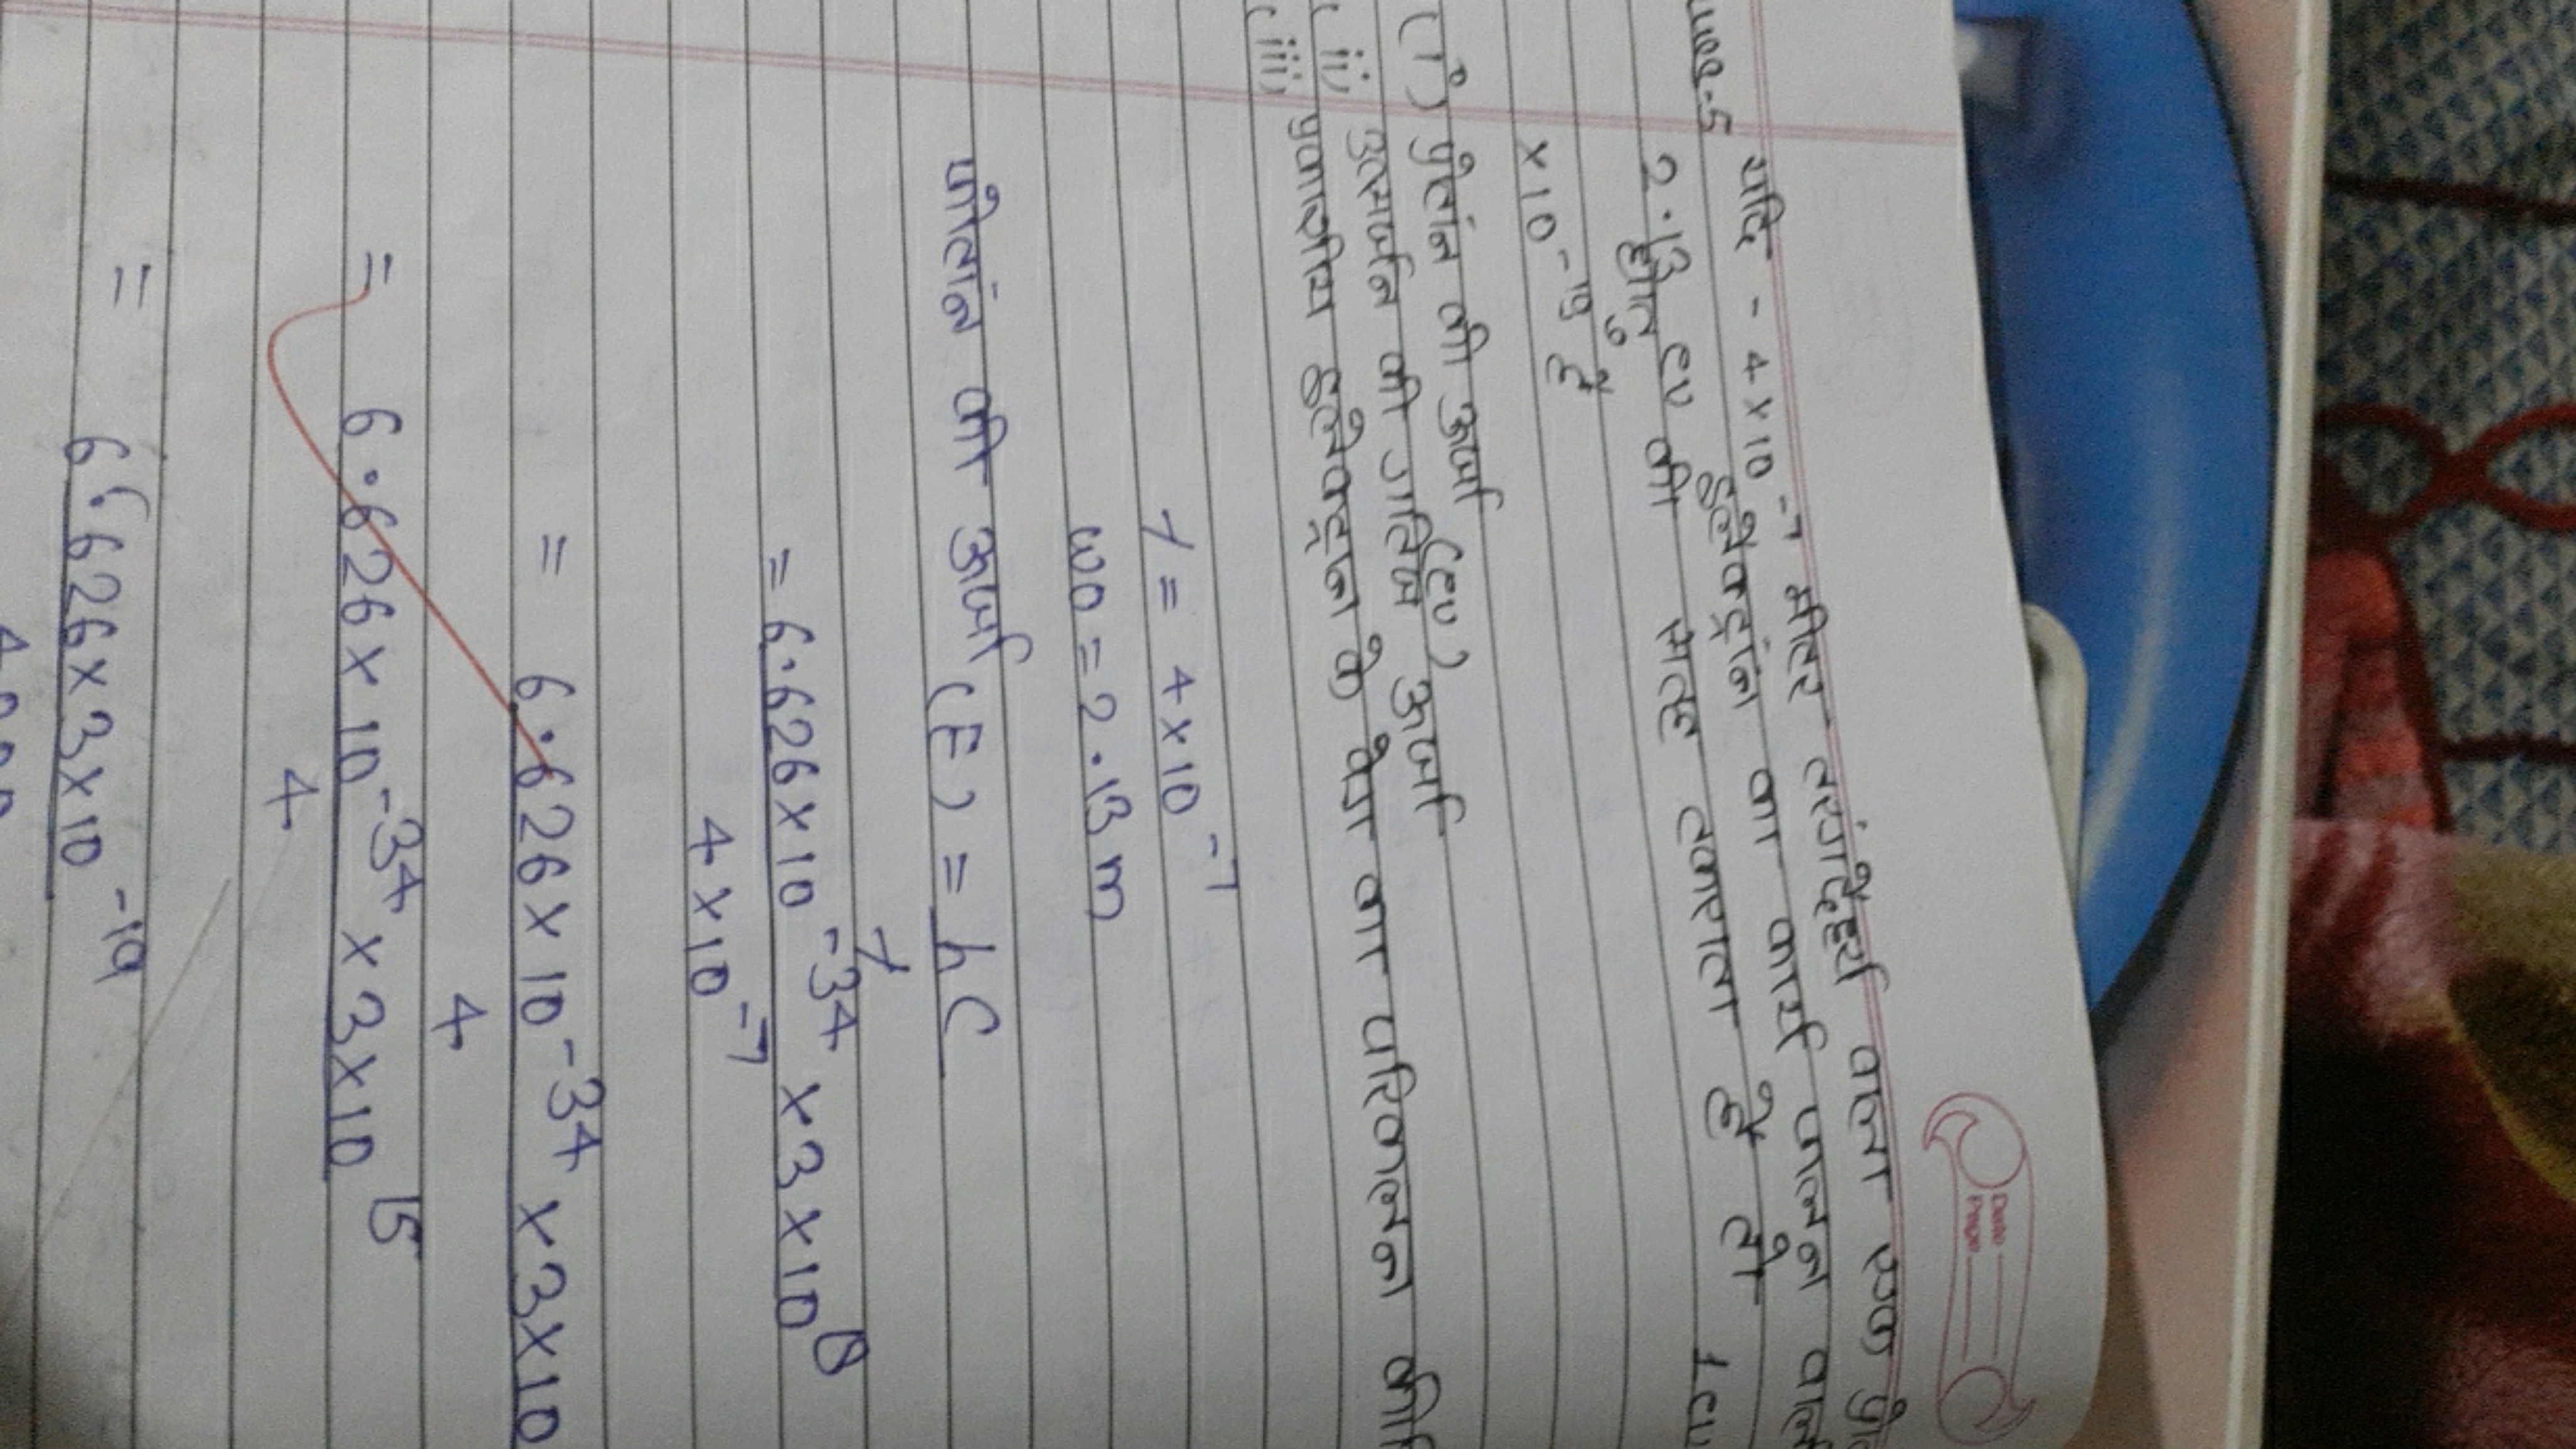 Date
Page
यदि - 4×10⁻⁷ मीटर तरंगदैर्ध्य वाला एक
इलेक्ट्रॉन का कार्य फलन
2.13 ev की सतह टकराता है तो 1eu
धातु
×10⁻¹⁹ है
(i) फोटोन की ऊर्जा (ev)
(ii) उत्सर्जन की गतिज ऊर्जा
(iii) प्रकाशीय इलेक्ट्रान के वेग का परिकलन
λ = 4×10⁻⁷
w0 = 2.13 m
फोटोन की ऊर्जा (E) = hc
λ
= 6.626×10⁻³⁴ × 3×10⁸
4×10⁻⁷
= 6.626×10⁻³⁴ × 3×10
4
= 6.626×10⁻³⁴ × 3×10¹⁵
4
= 6.626×3×10⁻¹⁹